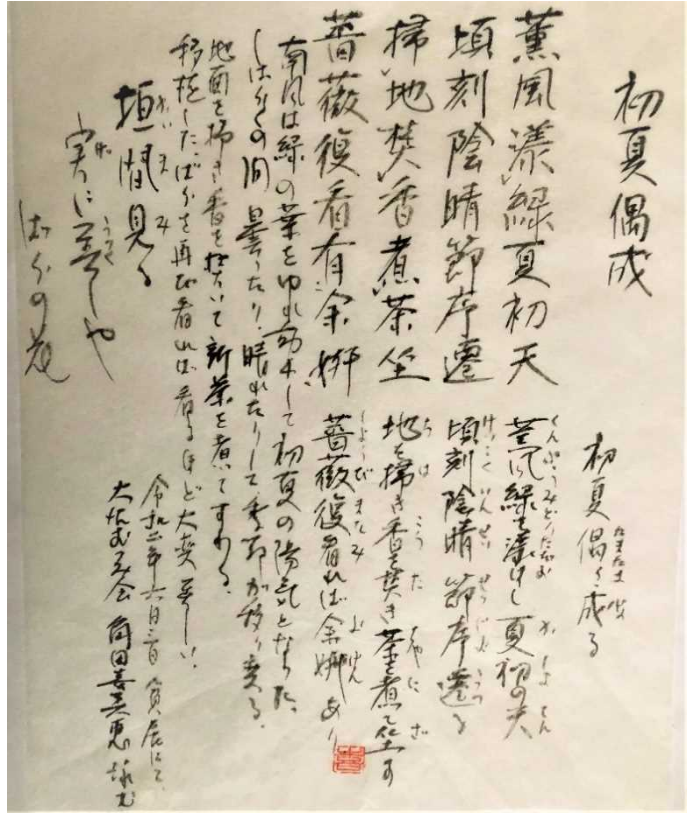 初夏偶成
薫風漾緑夏初天
頃刻陰晴節序遷
掃地焚香煮茶坐
薔薇復看有余妍
初夏偶々成る
薫風緑を漾はし夏初の天
頃刻陰晴節序遷る
地を掃き香を焚き茶を煮て坐す
薔薇復看れば余妍あり
南風は緑の葉をゆれ動かして初夏の陽気となった。
しばらくの間曇ったり、晴れたりして季節が移り変る。
地面を掃き香を焚いて新茶を煮てすわる。
移植したばらを再び看れば看るほど大変美しい。
垣間見る
実に美しや
ばらの花
令和二年六月三日
角田喜美恵